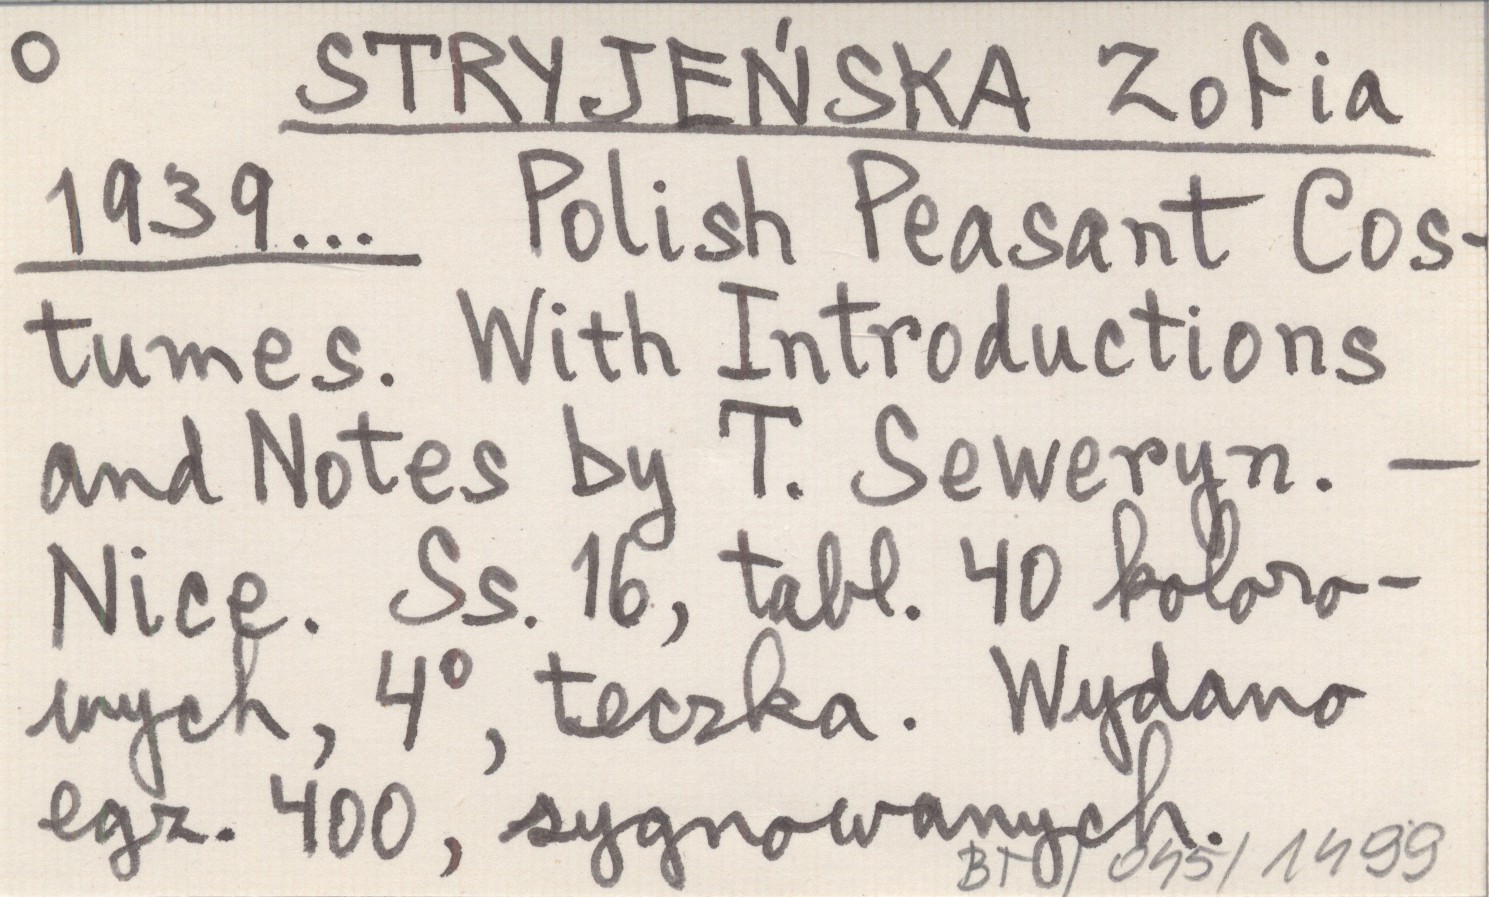 o STRYJEŃSKA Zofia
1939... Polish Peasant Cos-
tumes. With Introductions
and Notes by T. Seweryn. —
Nice. Ss. 16, tabl. 40 koloro-
wych, 4º, teczka. Wydano
egz. 400, sygnowanych.
/1499